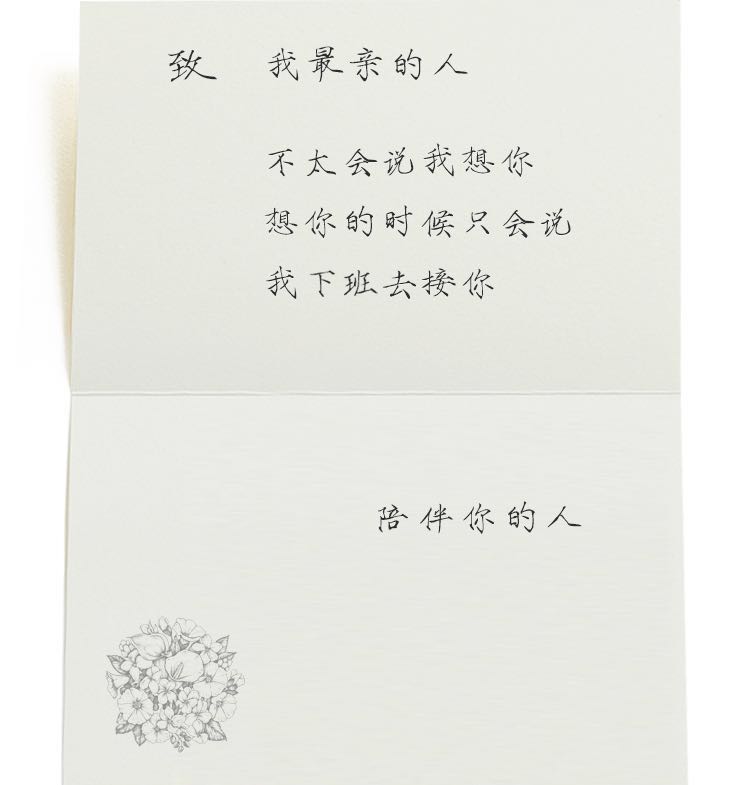 致 我最亲的人
不太会说我想你
想你的时候只会说
我下班去接你
陪伴你的人